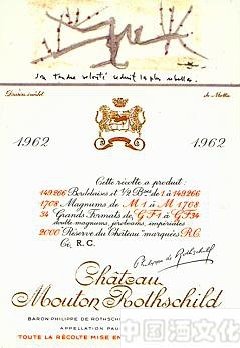 sa tendre volonté séduit la plus rebelle.
Dessin inédit de Matta
1962 1962
Cette récolte a produit:
149.266 Bordelaises et ½ Bses de 1 à 149.266
1708 Magnums de M 1 à M 1708
34 Grands Formats de G F1 à G F34
double magnums, jéroboams, impériales
2000 "Réserve du Château" marquées R.C.
Ci, R.C.
Philippe de Rothschild
Château
Mouton Rothschild
BARON PHILIPPE DE ROTHSC
APPELLATION PAU
TOUTE LA RÉCOLTE MISE EN
中国酒文化